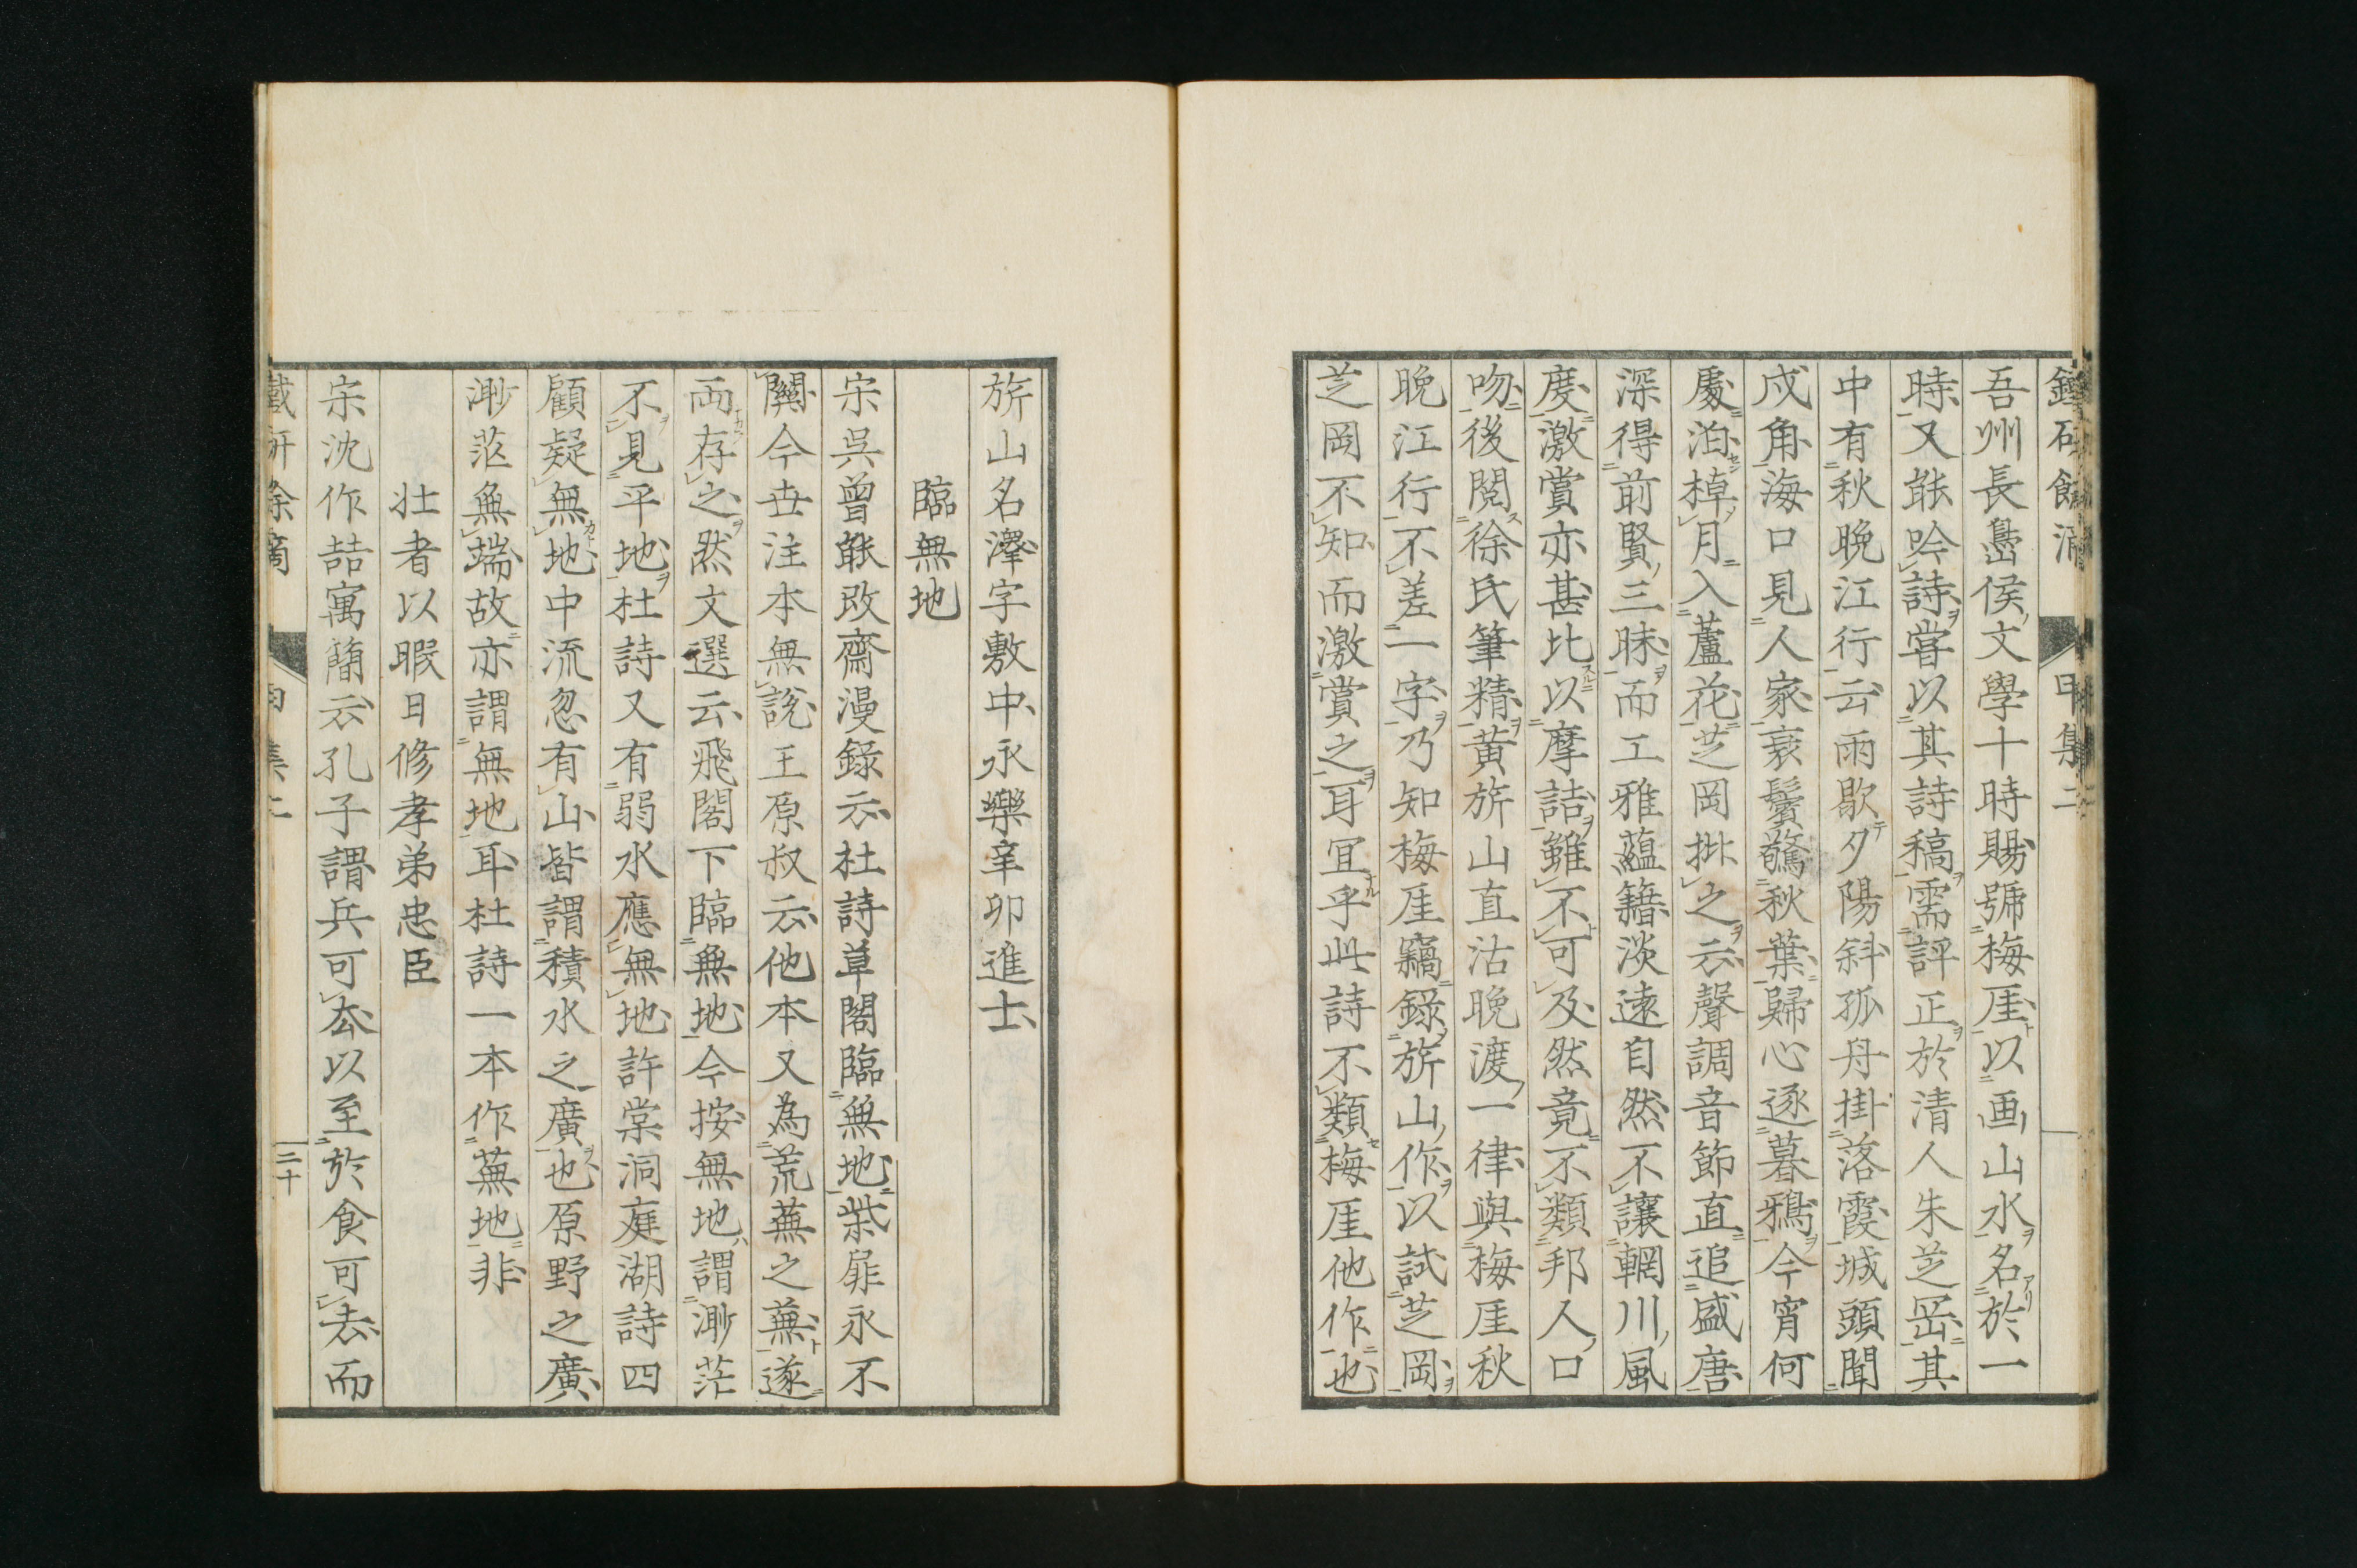 吾州長嶌侯文學十時賜號梅厓以画山水名於一
時又能吟詩嘗以其詩稿需評正於清人朱芝岡其
中有秋晩江行云雨歇夕陽斜孤舟掛落霞城頭聞
戍角海口見人家衰鬢驚秋葉歸心逐暮鴉今宵何
處泊棹月入蘆花芝岡批之云聲調音節直追盛唐
深得前賢三昧而工雅蘊籍淡遠自然不讓輞川風
度激賞亦甚比以摩詰雖不可及然竟不類邦人口
吻後閱徐氏筆精黄旂山直沽晩渡一律與梅厓秋
晩江行不差一字乃知梅厓竊錄旂山作以試芝岡
芝岡不知而激賞之耳宜乎此詩不類梅厓他作也
旂山名澤字敷中永樂辛卯進士
臨無地
宋吳曾能改齋漫録云杜詩草閣臨無地柴扉永不
關今世注本無說王原叔云他本又為荒蕪之蕪遂
両存之然文選云飛閣下臨無地今按無地謂渺茫
不見平地杜詩又有弱水應無地許棠洞庭湖詩四
顧疑無地中流忽有山皆謂積水之廣也原野之廣
渺茫無端故亦謂無地耳杜詩一本作蕪地非
壮者以暇日修孝弟忠臣
宋沈作喆寓簡云孔子謂兵可去以至於食可去而
丙集二
二十